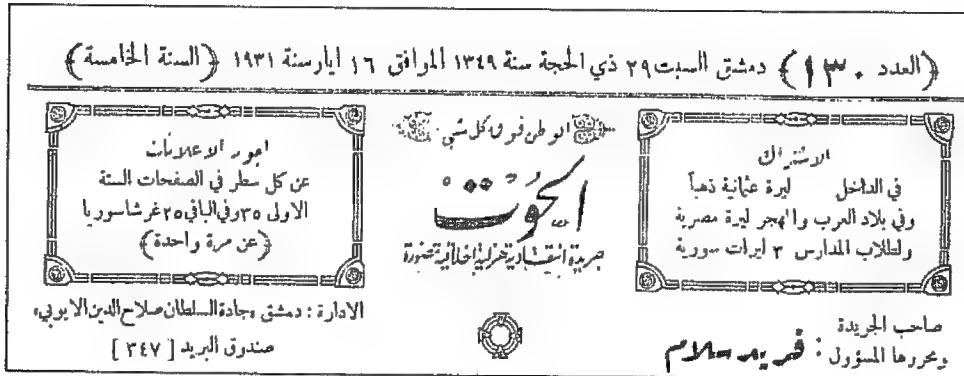 ﴿العدد ١٣٠﴾ دمشق السبت ٢٩ ذي الحجة سنة ١٣٤٩ الموافق ١٦ ايار سنة ١٩٣١ ﴿السنة الخامسة﴾
الاشتراك
في الداخل ليرة عثمانية ذهباً
وفي بلاد العرب والمهجر ليرة مصرية
ولطلاب المدارس ٣ ليرات سورية
صاحب الجريدة
ومحررها المسؤول : فريد سلام
الوطن فوق كل شي
الحوت
جريدة انتقادية هزلية اخلاقية مصورة
اجور الاعلانات
عن كل سطر في الصفحات الستة
الاولى ٣٥ وفي الباقي ٢٥ غرشا سوريا
﴿عن مرة واحدة﴾
الادارة : دمشق «جادة السلطان صلاح الدين الايوبي»
صندوق البريد [ ٣٤٧ ]